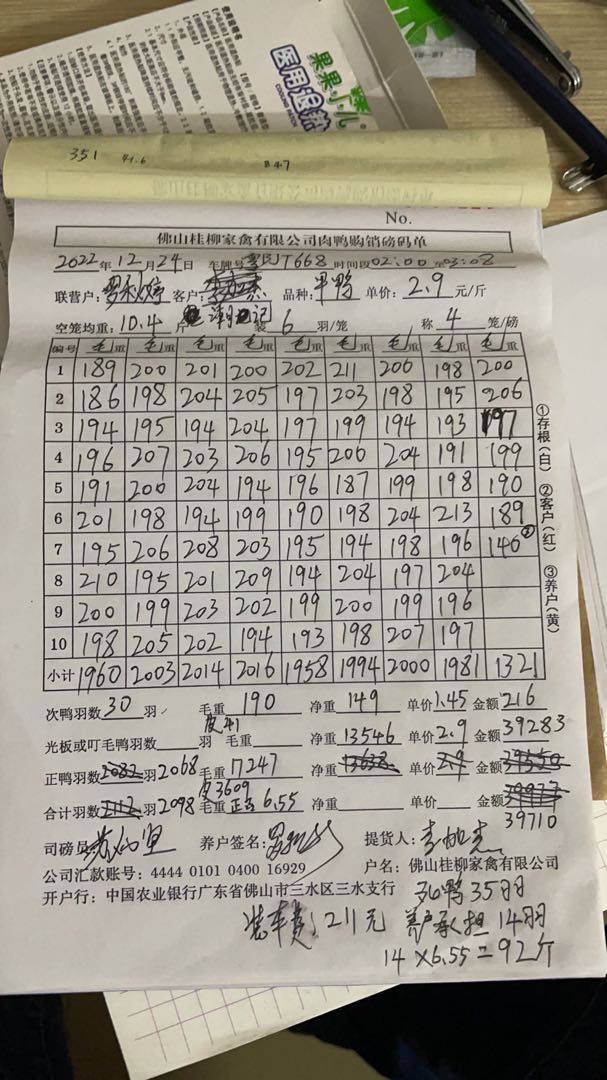 果果
小儿
医用退热
COOLING
351 41.6 B47
No.
佛山桂柳家禽有限公司肉鸭购销磅码单
2022年12月24日 车牌号 J7668 时间段02:00至03:08
联营户: 客户: 品种: 甲鸭 单价: 2.9 元/斤
空笼均重: 10.4 斤 装 6 羽/笼 称 4 笼/磅
编号 毛重 毛重 毛重 毛重 毛重 毛重 毛重 毛重 毛重
1 189 200 201 200 202 211 206 198 200
2 186 198 204 205 197 203 198 195 206
3 194 195 194 204 197 199 194 193 197
4 196 207 203 206 195 200 204 191 199
5 191 200 204 194 196 187 199 198 190
6 201 198 194 199 190 198 204 213 189
7 195 206 208 203 195 194 198 196 140
8 210 195 201 209 194 204 197 204
9 200 199 203 202 199 200 199 196
10 198 205 202 194 193 198 207 197
小计 1960 2003 2014 2016 1958 1994 2000 1981 1321
①存根(白) ②客户(红) ③养户(黄)
次鸭羽数 30 羽 毛重 190 净重 149 单价 1.45 金额 216
皮41
光板或叮毛鸭羽数 羽 毛重 净重 13546 单价 2.9 金额 39283
正鸭羽数 2082 羽 2068 毛重 17247 净重 13638 单价 2.9 金额 39550
皮3609
合计羽数 2112 羽 2098 毛重 6.55 净重 单价 金额
39710
司磅员: 养户签名: 提货人:
公司汇款账号: 4444 0101 0400 16929 户名: 佛山桂柳家禽有限公司
开户行: 中国农业银行广东省佛山市三水区三水支行
鸭35羽
装车费: 211元 养户承担14羽
14×6.55=92斤